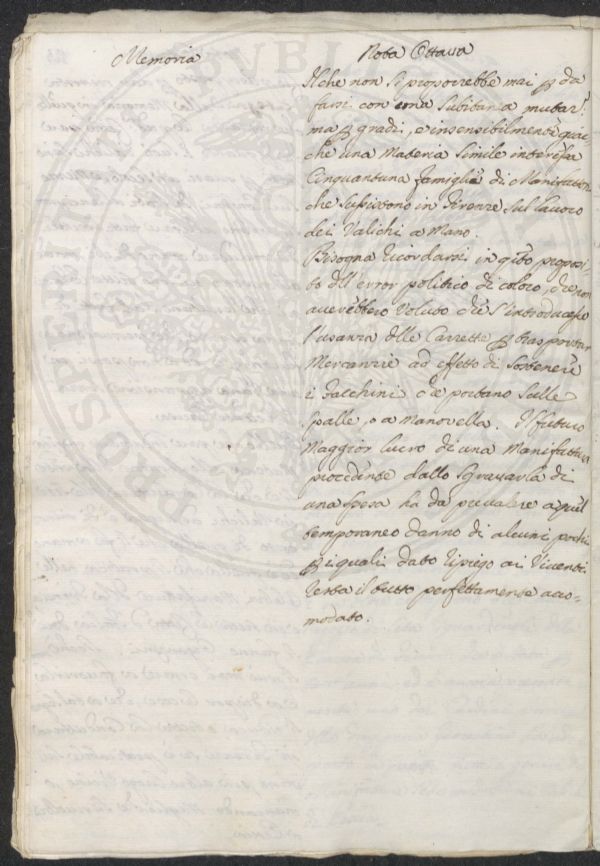 Memoria
Nota Ottava
Il che non si proporrebbe mai p da
farsi con una subitanea mutaz:
ma p gradi, e insensibilmente giac-
chè una Materia simile interessa
Cinquantuna famiglie di Manifattori
che sussistono in Firenze sul lavoro
dei Valichi a Mano.
Bisogna ricordarsi in qsto proposi-
to dell'error politico di coloro, che non
averebbero voluto che s'introducesse
l'usanza delle Carrette p trasportar
Mercanzie ad effetto di sostenere
i facchini che portano sulle
spalle, o a Manovella. Il futuro
Maggior lucro di una Manifattura
procedente dallo sgravarla di
una spesa ha da prevalere a quel
temporaneo danno di alcuni pochi
p i quali dato ripiego ai viventi.
resta il tutto perfettamente acco-
modato.
PROSPERI
PVBL